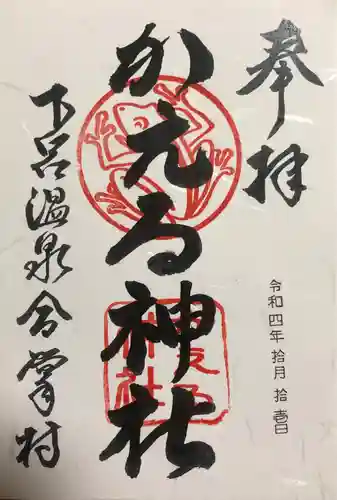 奉拝
令和四年 拾月 拾壱日
かえる神社
下呂温泉合掌村